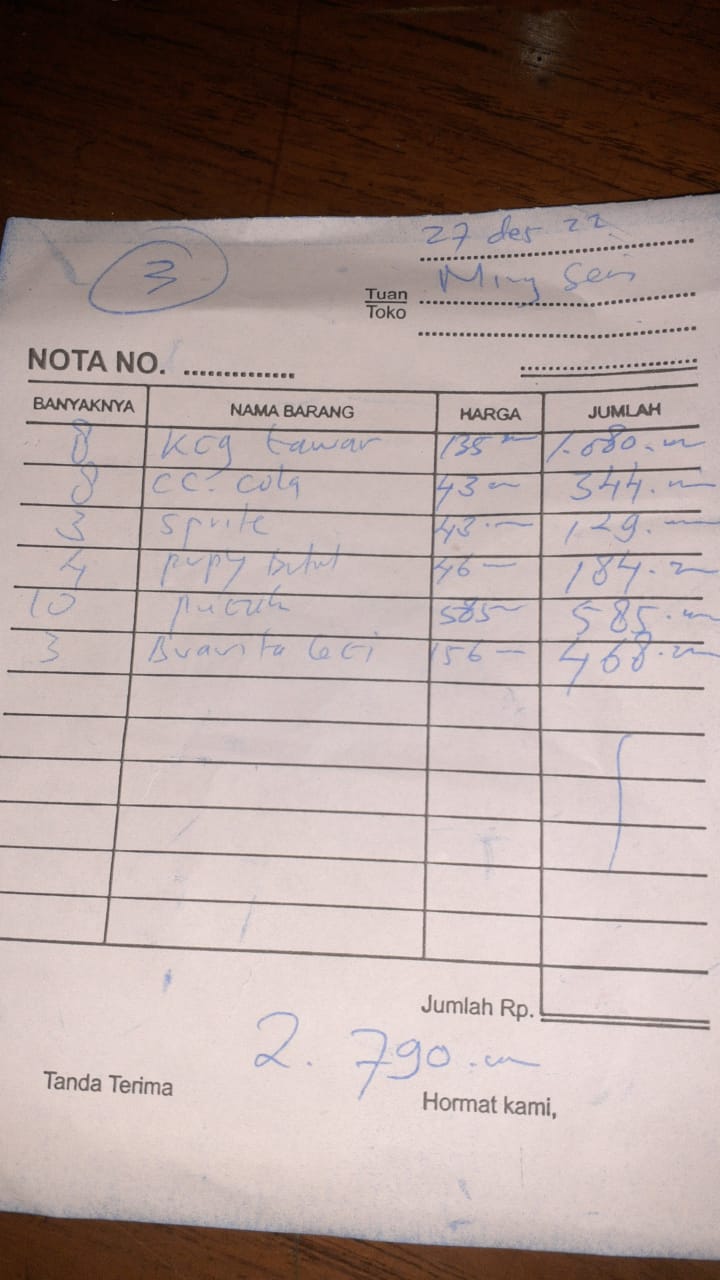 3
27 des 22
Tuan
Toko
NOTA NO. ................
BANYAKNYA NAMA BARANG HARGA JUMLAH
8 kcg tawar 135 1.080.
8 cc. cola 43 344.
3 sprite 43. 129.
4 46 184.
10 pucuk 585 585.
3 Buavita 156 468.
Jumlah Rp.
2.790.
Tanda Terima
Hormat kami,